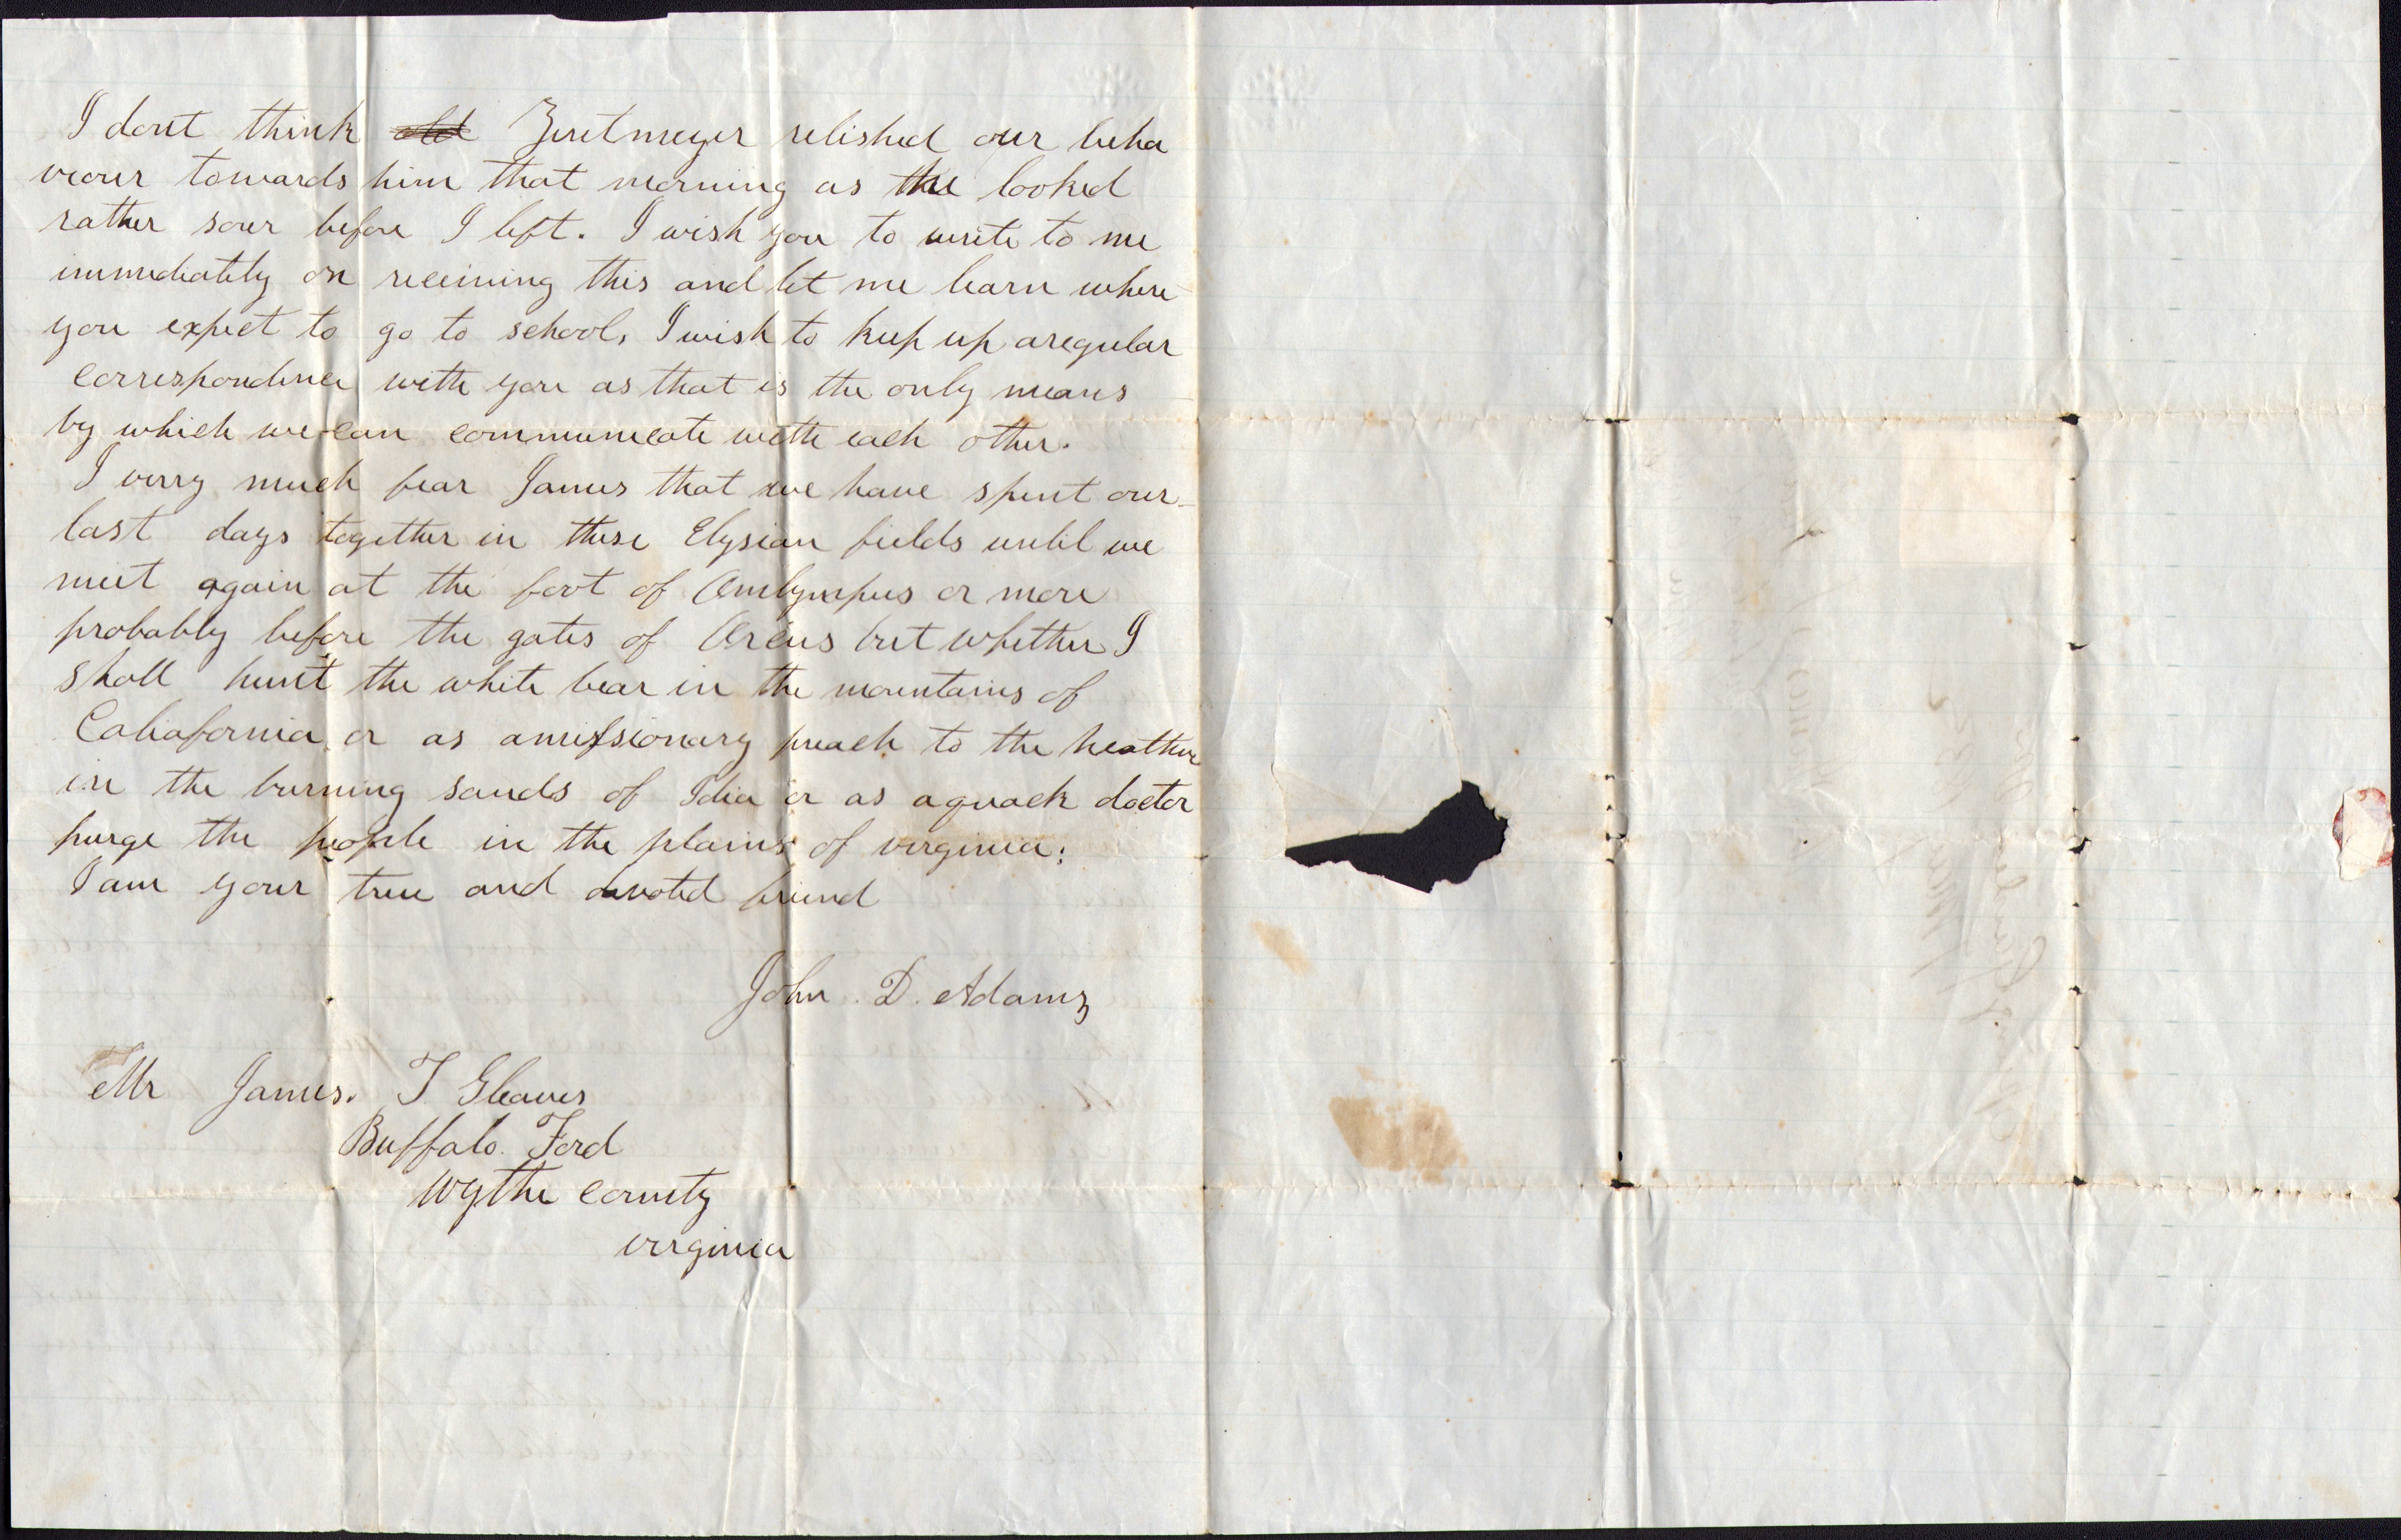 I dont think old Zuetmeyer relished our beha
viour towards him that morning as the looked
rather sour before I left. I wish you to write to me
immediately on receiving this and let me learn where
you expect to go to school, I wish to keep up aregular
correspondence with you as that is the only means
by which we can communicate with each other.
I verry much fear James that we have spent our
last days together in these Elysian fields until we
meet again at the foot of Omlympus or more
probably before the gates of Orcus but whether I
shall hunt the white bear in the mountains of
Caliafornia, or as amissionary preach to the heathen
in the burning sands of Idia or as aquack doctor
purge the people in the plains of virginia;
I am your true and devoted friend
John. D. Adams
Mr James. T Gleaves
Buffalo. Ford
Wythe county
virginia